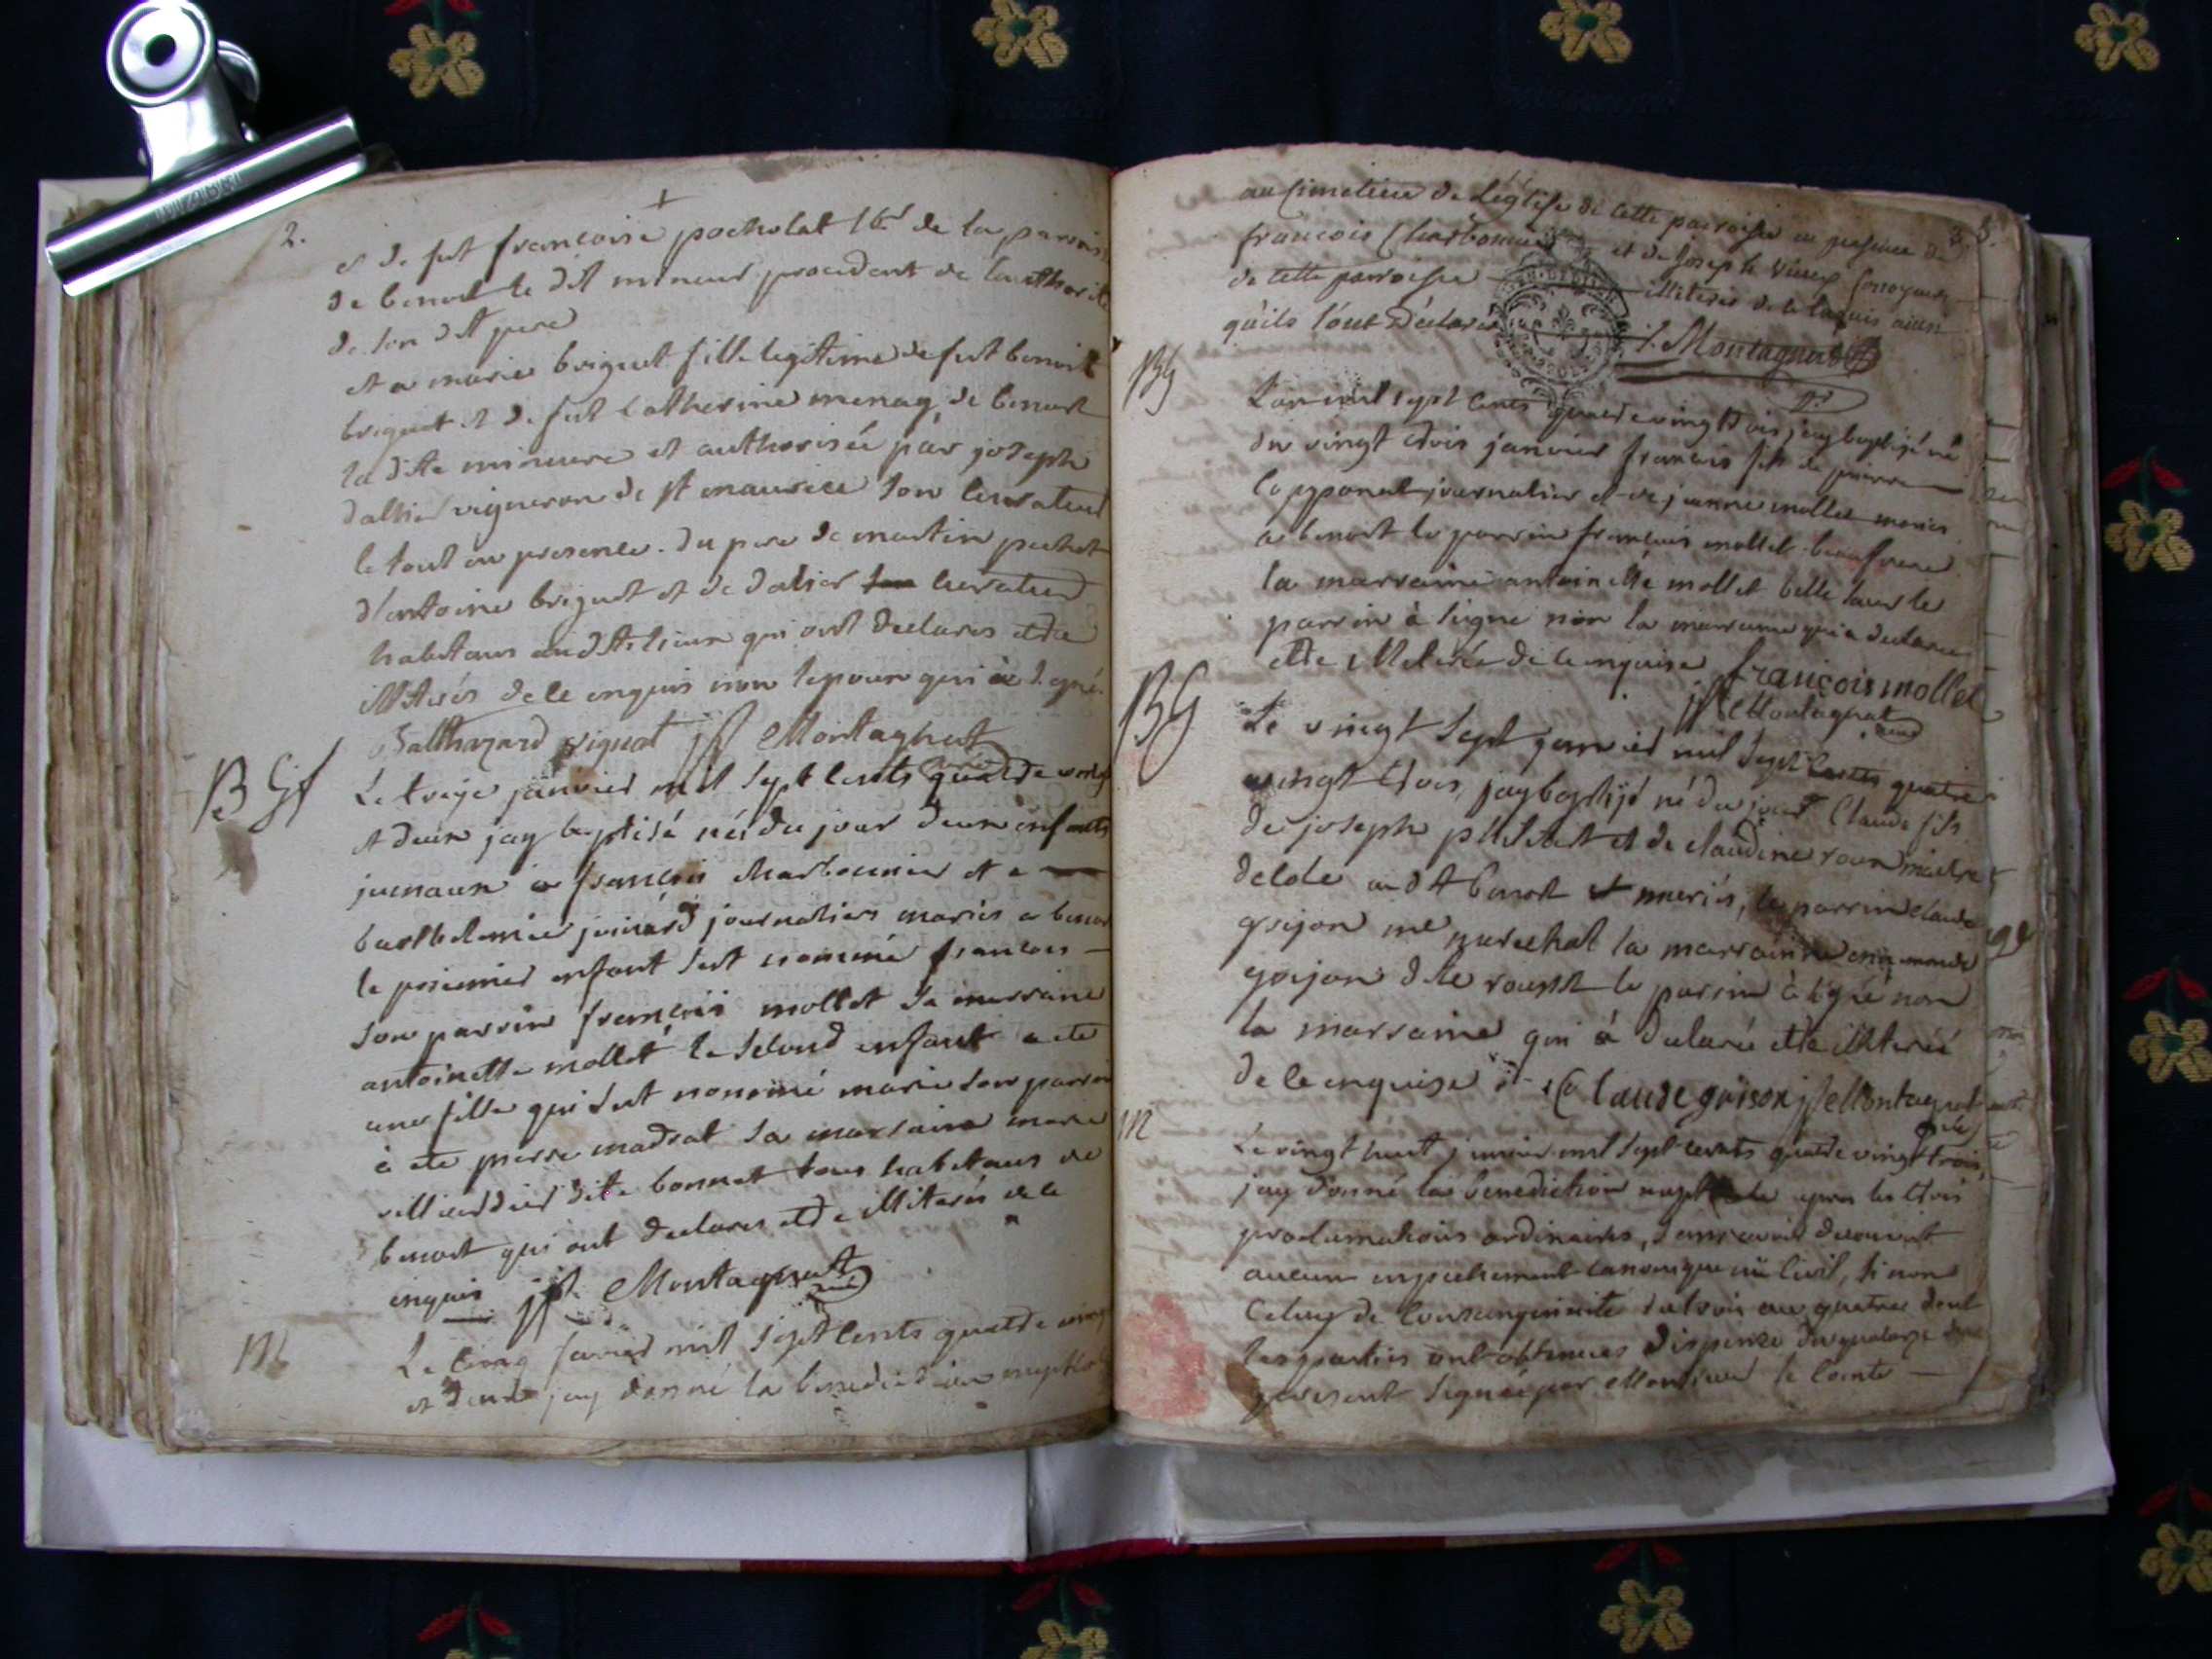 2.
et de fut francoise pocholat lbl de la parois
de benost le dit mineur procedant de lauthorité
de son dit pere
et a marie briguet fille legitime de fut benoit
briguet et de fut Catherine menag de benost
la dite mineure et authorisée par joseph
dalhier vigneron de st maurice son curateur
le tout en presence du pere de martin pochet
d'antoine briguet et de dalier curateur
habitans audit lieux qui ont declares etre
illiterés de ce enquis non lepoux qui a signé
Balthazard viguet jph Montagnat curé
B Gf
Le treize janvier mil sept cents quatre vingt
et deux jay baptisé nés du jour deux enfants
jumaux a francois charbonnier et a
barthelemie journaliers mariés a benost
le premier enfant sest nommé francois
son parrin francois mollet sa marraine
antoinette mollet le second enfant a ete
une fille qui sest nommé marie son parrin
à ete pierre madrat sa marraine marie
dite bonnet tous habitans de
benost qui ont declares etre illiterés de ce
enquis jph Montagnat curé
M
Le cinq mil sept cents quatre vingt
et jay donné la benediction nuptiale
3.
au Cimetiere de Léglise de cette parroisse en presence de
francois Charbonnier et de Joseph vieux
de cette parroisse illiterés de ce enquis ainsi
qu'ils l'ont déclaré J. Montagnat
BG
L'an mil sept cents quatre vingt trois jay baptisé né
du vingt trois janvier francois fils de pierre
copponat journalier et de jeanne mollet mariés
a benost le parrin francois mollet beaufrere
la marraine antoinette mollet belle soeur le
parrin à signé non la marraine qui a declaré
etre illiterée de ce enquise françois mollet
jph Montagnat curé
BG
Le vingt sept janvier mil sept cents quatre
vingt trois, jay baptisé né du jour Claude fils
de joseph et de claudine roux maitre
decole audit benost et mariés, le parrin claude
grison me marechal la marraine
grison dite le parrin à signé non
la marraine qui à declaré etre illiterée
de ce enquise Claude grison jph Montagnat
curé
M
Le vingt huit janvier mil sept cents quatre vingt trois
jay donné la benediction nuptiale apres les trois
proclamations ordinaires, sans avoir decouvert
aucun empechement canonique ni civil, si non
Celuy de Consanguinité du trois au quatre dont
les parties ont obtenues dispense du quatorze du
present signée par Monsieur le Comte